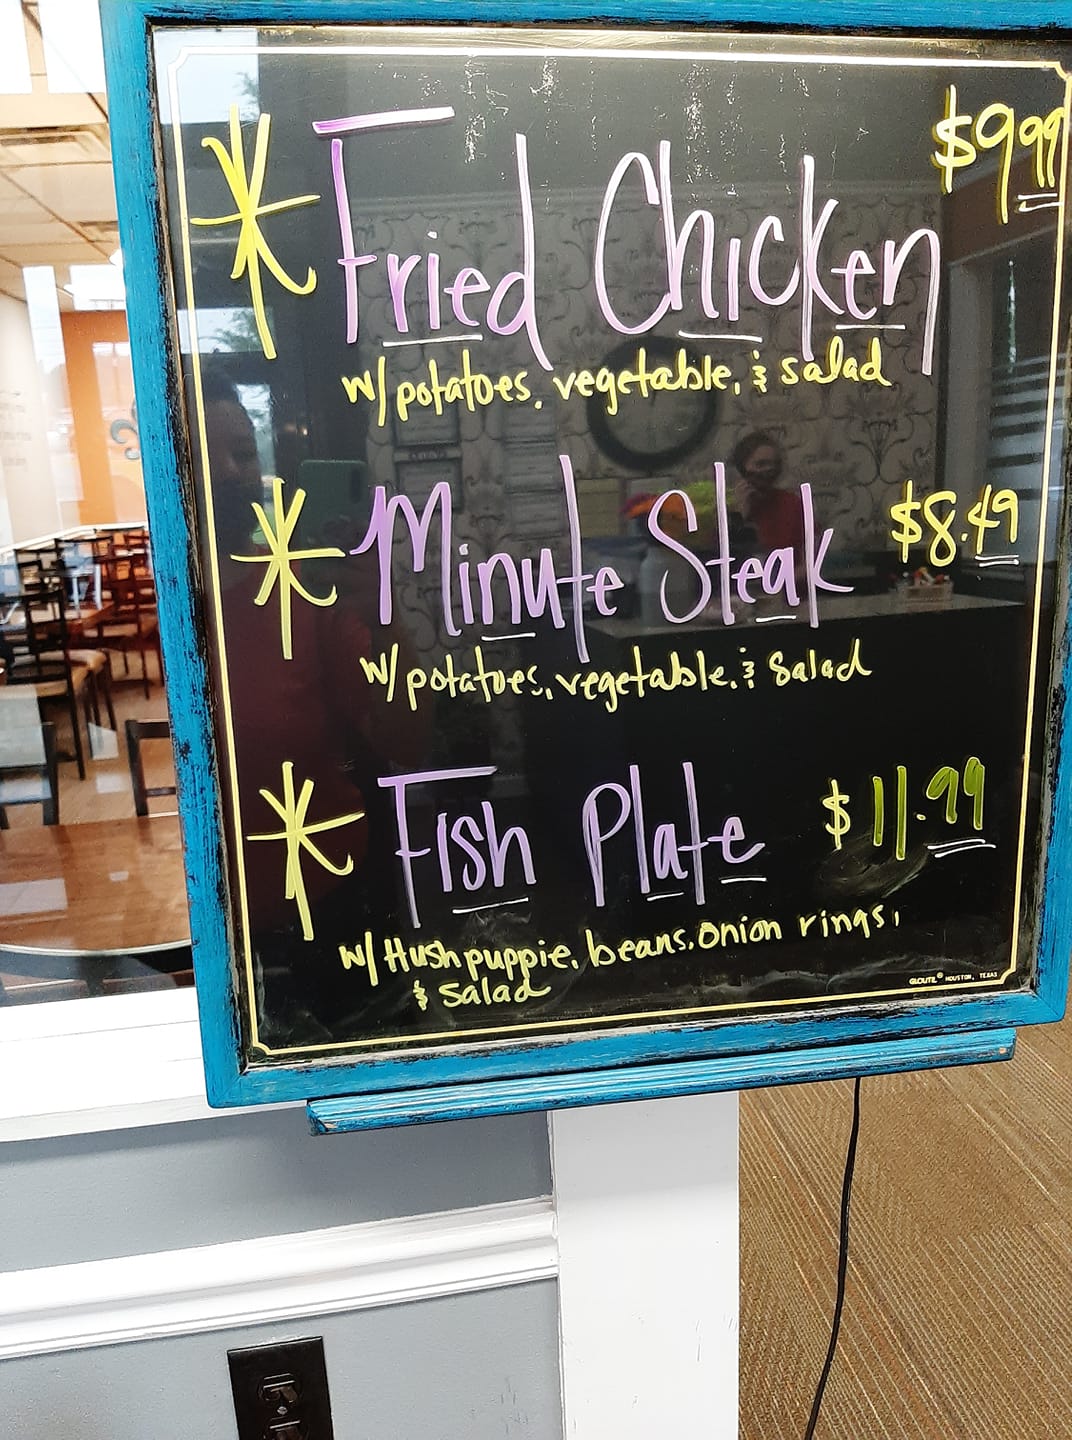 * Fried Chicken $9.99
w/ potatoes, vegetable, & salad
* Minute Steak $8.49
w/ potatoes, vegetable, & Salad
* Fish Plate $11.99
w/ Hushpuppie, beans, onion rings,
& Salad
GLOUTIL® HOUSTON, TEXAS